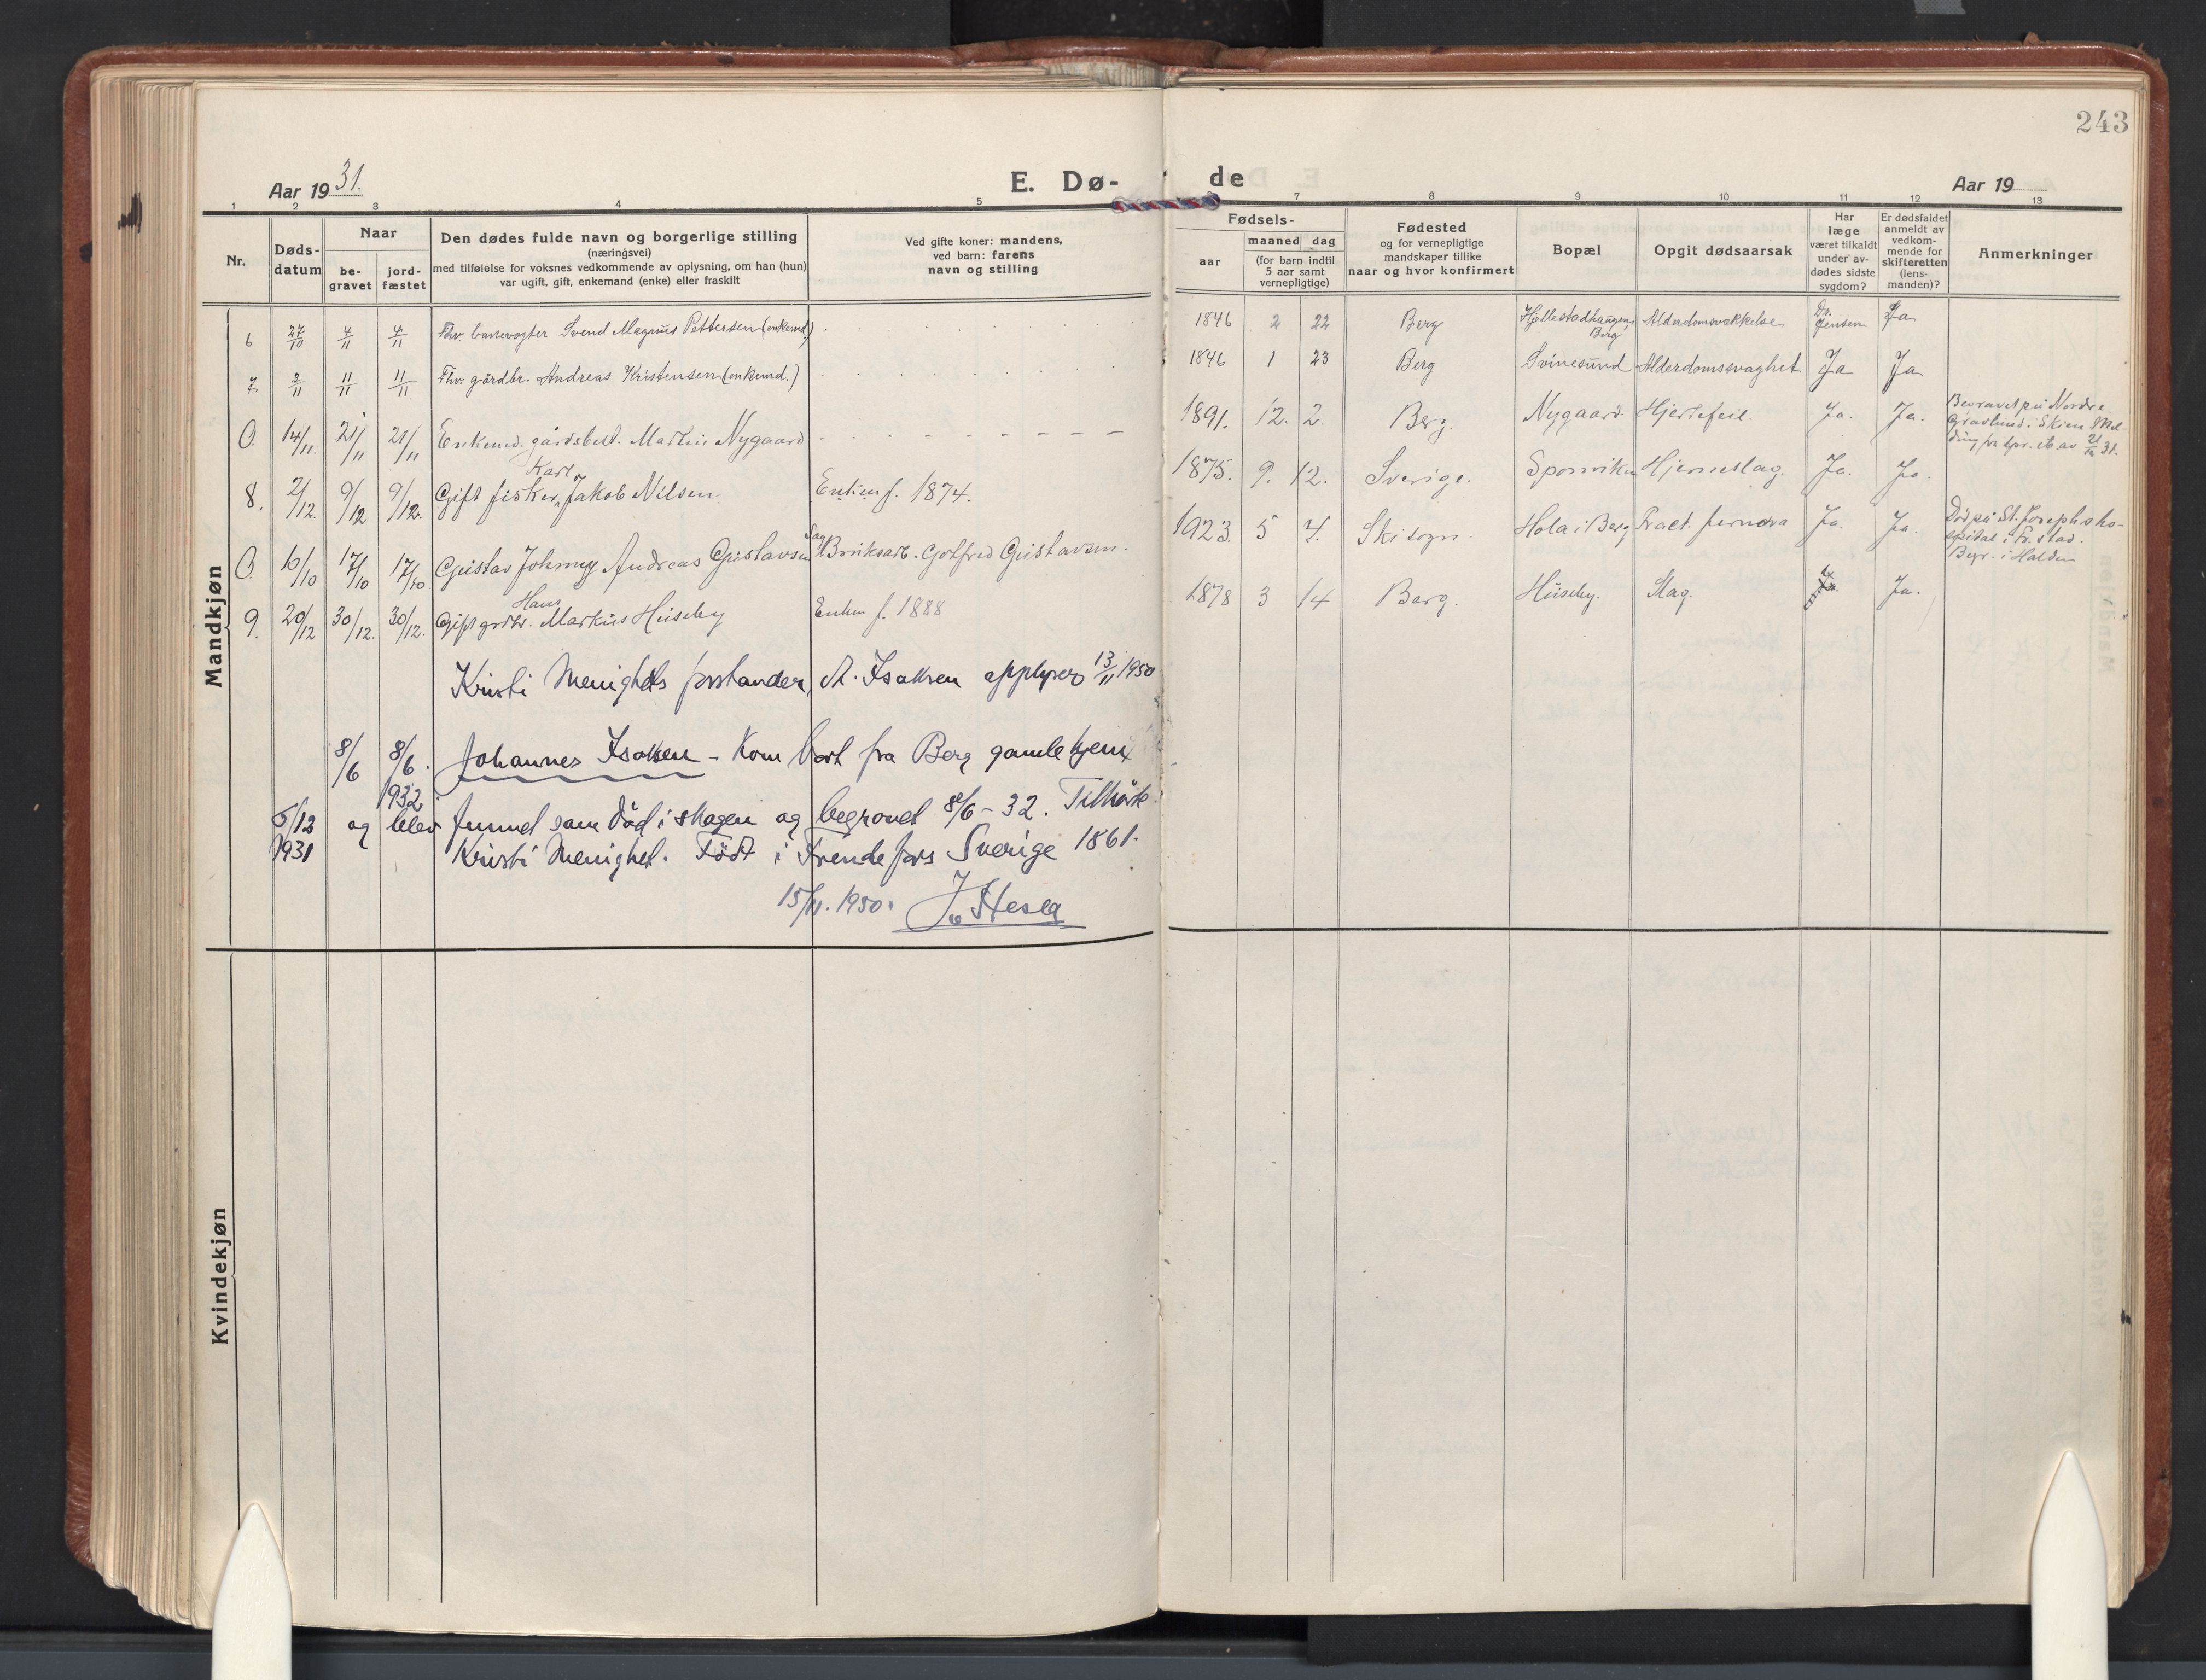 243
Aar 1931.
E. Dø-
de
Aar 19
1 2 3 4 5 7 8 9 10 11 12 13
Nr.
Døds-
datum
Naar
be-
gravet
jord-
fæstet
Den dødes fulde navn og borgerlige stilling
(næringsvei)
med tilføielse for voksnes vedkommende av oplysning, om han (hun)
var ugift, gift, enkemand (enke) eller fraskilt
Ved gifte koner: mandens,
ved barn: farens
navn og stilling
Fødsels-
aar
maaned dag
(for barn indtil
5 aar samt
vernepligtige)
Fødested
og for vernepligtige
mandskaper tillike
naar og hvor konfirmert
Bopæl
Opgit dødsaarsak
Har
læge
været tilkaldt
under av-
dødes sidste
sygdom?
Er dødsfaldet
anmeldt av
vedkom-
mende for
skifteretten
(lens-
manden)?
Anmerkninger
Mandkjøn
6 27/10 4/11 4/11 Fhv. banevogter Svend Magnus Pettersen (enkemd.) 1846 2 22 Berg Hjellestadhaugen, Berg Alderdomssvækkelse Dr. Jensen Ja
7 3/11 11/11 11/11 Fhv. gårdbr. Andreas Kristensen (enkemd.) 1846 1 23 Berg Svinesund Alderdomssvaghet Ja Ja
0. 14/11 21/11 21/11 Enkemd. gårdsbest. Martin Nygaard 1891. 12. 2. Berg. Nygaard. Hjertefeil. Ja. Ja. Begravet på Nordre
Gravlund i Skien
8. 2/12. 9/12 9/12. Gift fisker, Karl Jakob Nilsen. Enken f. 1874. 1875. 9. 12. Sverige. Sponviken Hjerneslag. Ja. Ja.
0. 10/10 17/10 17/10 Gustav Johnny Andreas Gustavsen Sag Bruksarb. Gotfred Gustavsen. 1923. 5 4. Ski sogn. Hola i Berg Ja. Ja. Død på St. Josephs ho-
spital i Fr.stad.
Begr. i Halden
9. 20/12 30/12. 30/12. Gift grdbr. Hans Markus Huseby Enken f. 1888 1878 3 14 Berg. Huseby. Slag. Ja.
Kristi Menighets forstander, A. Isaksen opplyser 13/11 1950
8/6 8/6. 1932 Johannes Isaksen - Kom bort fra Berg gamlehjem
5/12 1931 og blev funnet som död i skogen og begravet 8/6-32. Tilhörte
Kristi Menighet. Födt i Frendefors Sverige 1861.
15/11. 1950.
Kvindekjøn